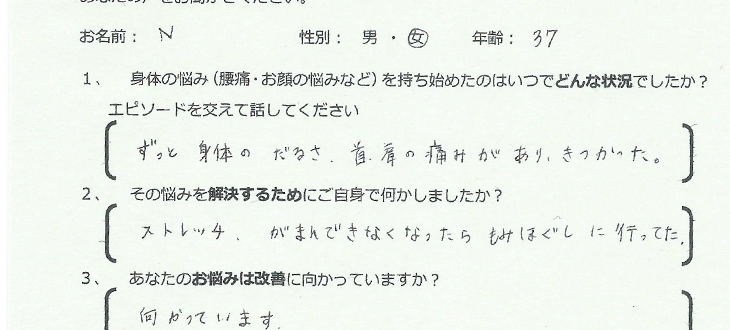 お名前： N 性別： 男 ・ 女 年齢： 37
1、 身体の悩み（腰痛・お顔の悩みなど）を持ち始めたのはいつでどんな状況でしたか？
エピソードを交えて話してください
ずっと 身体の だるさ、首、肩の痛みが あり、きつかった。
2、 その悩みを解決するためにご自身で何かしましたか？
ストレッチ、 がまんできなくなったら もみほぐし に 行ってた。
3、 あなたのお悩みは改善に向かっていますか？
向かっています。